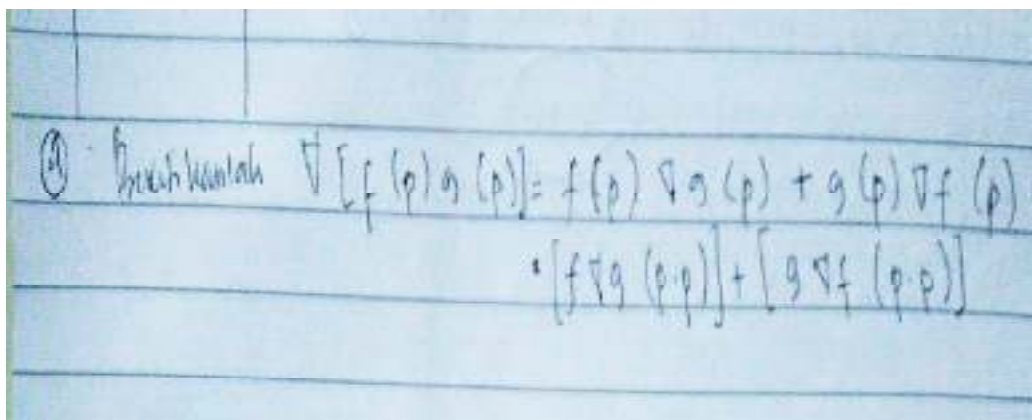 ④ Buktikanlah ∇ [f (p) g (p)] = f(p) ∇g (p) + g (p) ∇f (p)
• [f∇g (p·p)] + [g ∇f (p·p)]